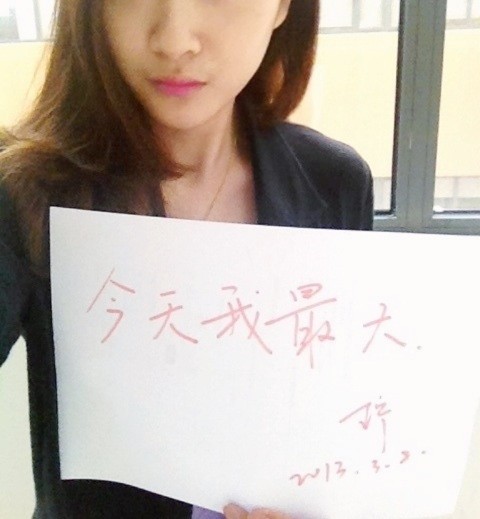 今天我最大.
婷
2013.3.8.